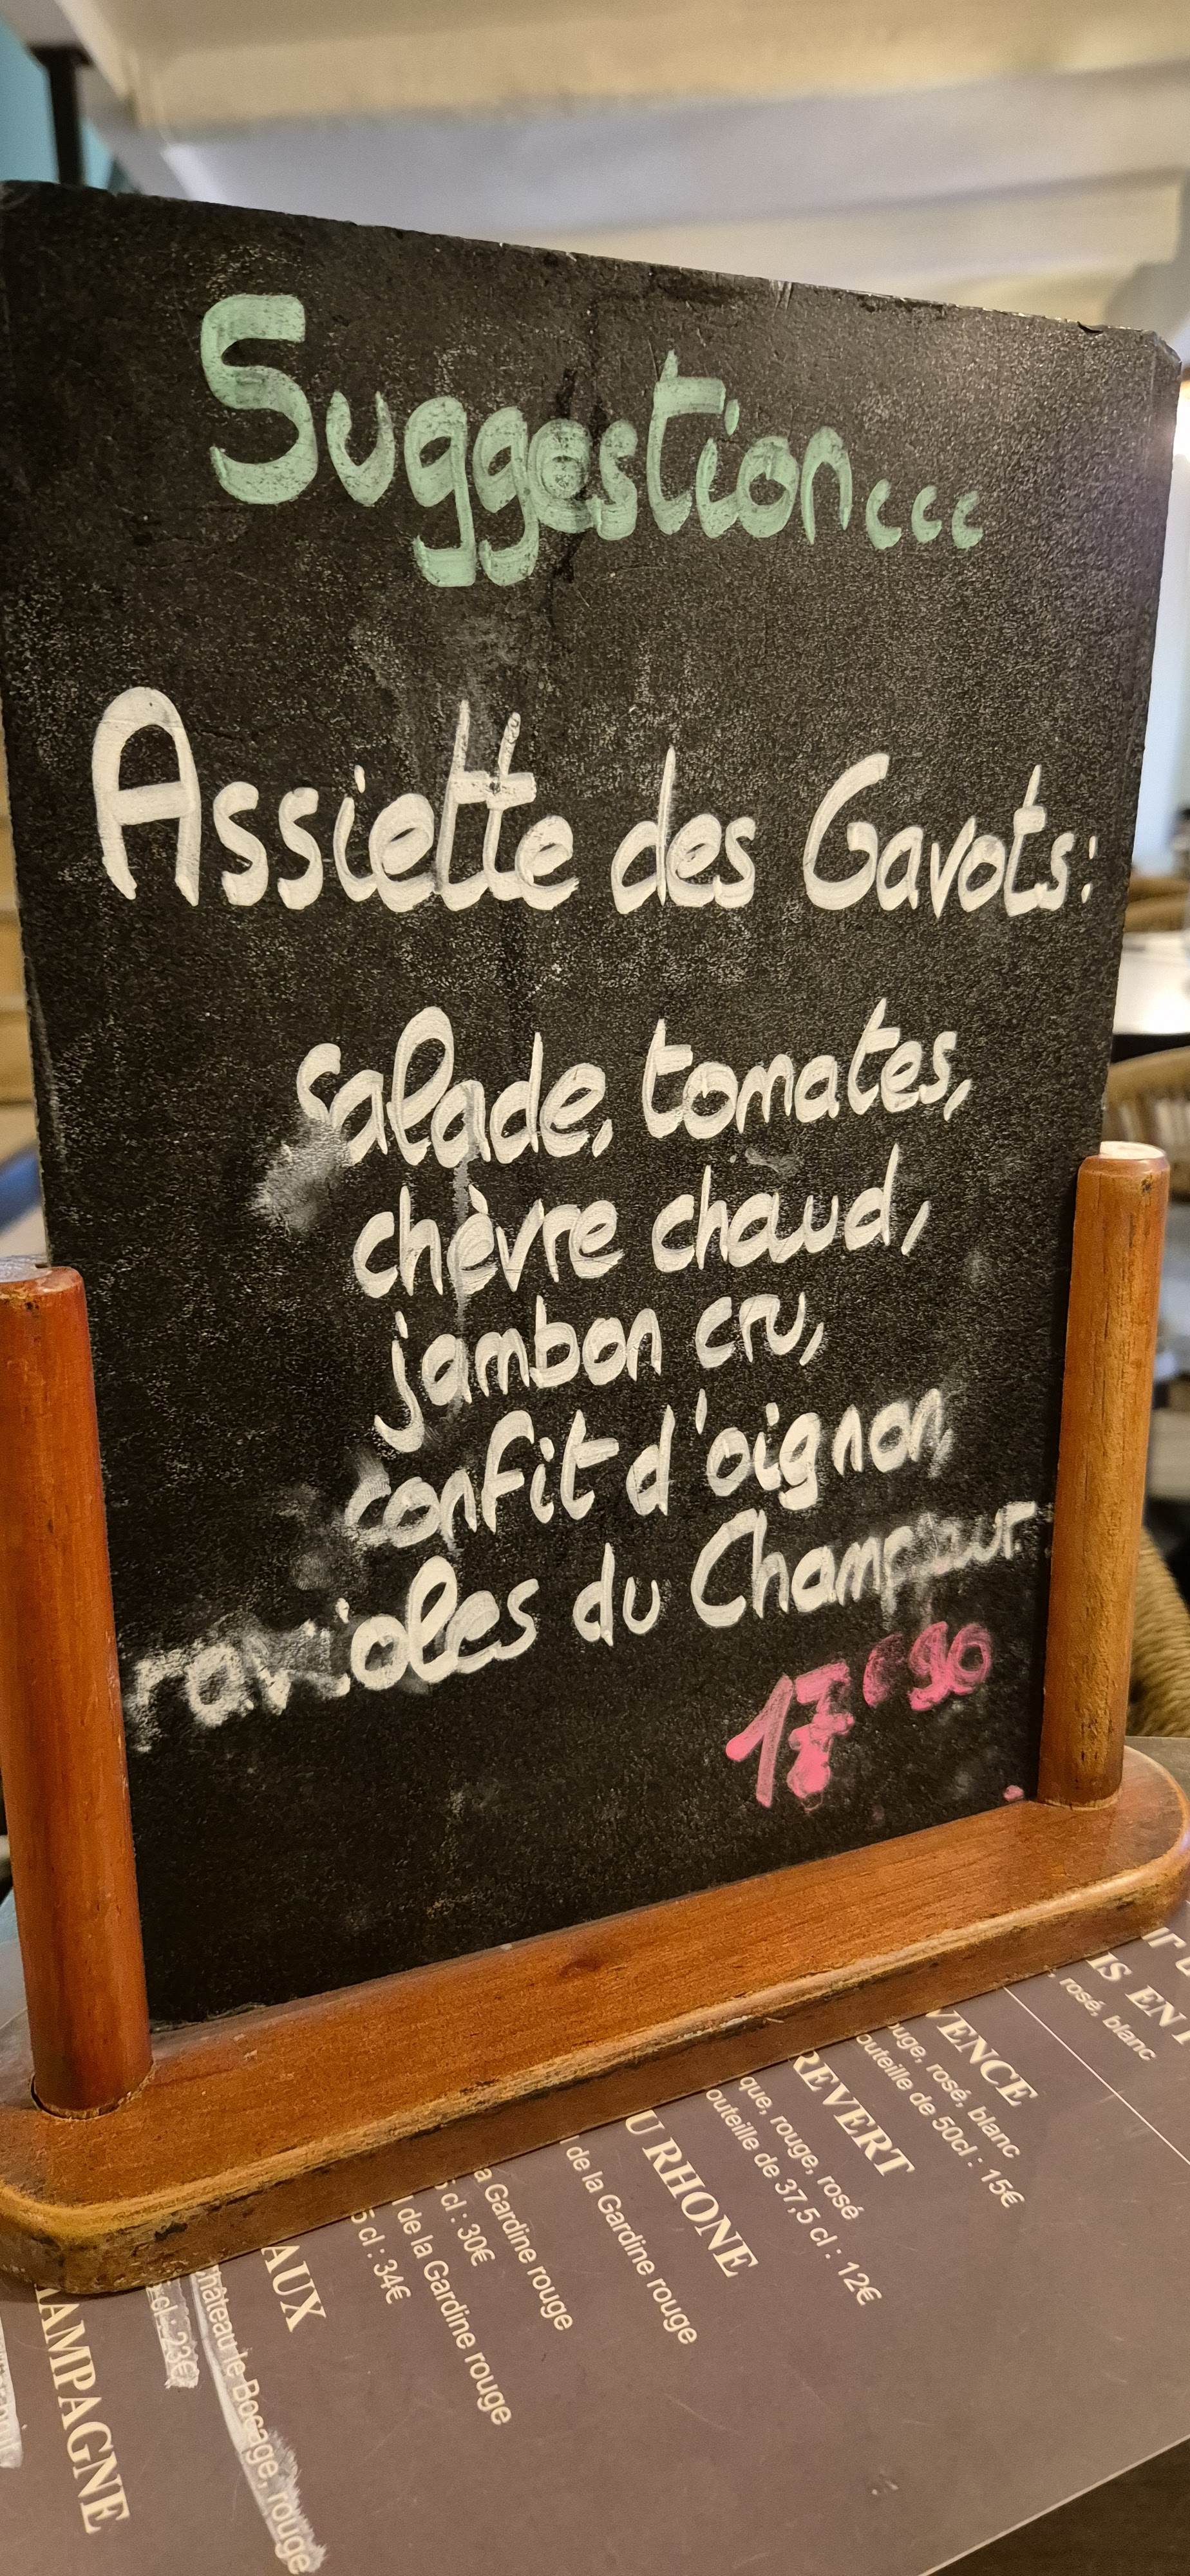 Suggestion...
Assiette des Gavots:
salade, tomates,
chèvre chaud,
jambon cru,
confit d'oignon,
ravioles du Champsaur.
17€90
rosé, blanc
rouge, rosé, blanc
bouteille de 50cl : 15€
REVERT
rouge, rosé
bouteille de 37,5 cl : 12€
RHONE
de la Gardine rouge
Gardine rouge
cl : 30€
de la Gardine rouge
5 cl : 34€
Château le Bocage, rouge
cl : 23€